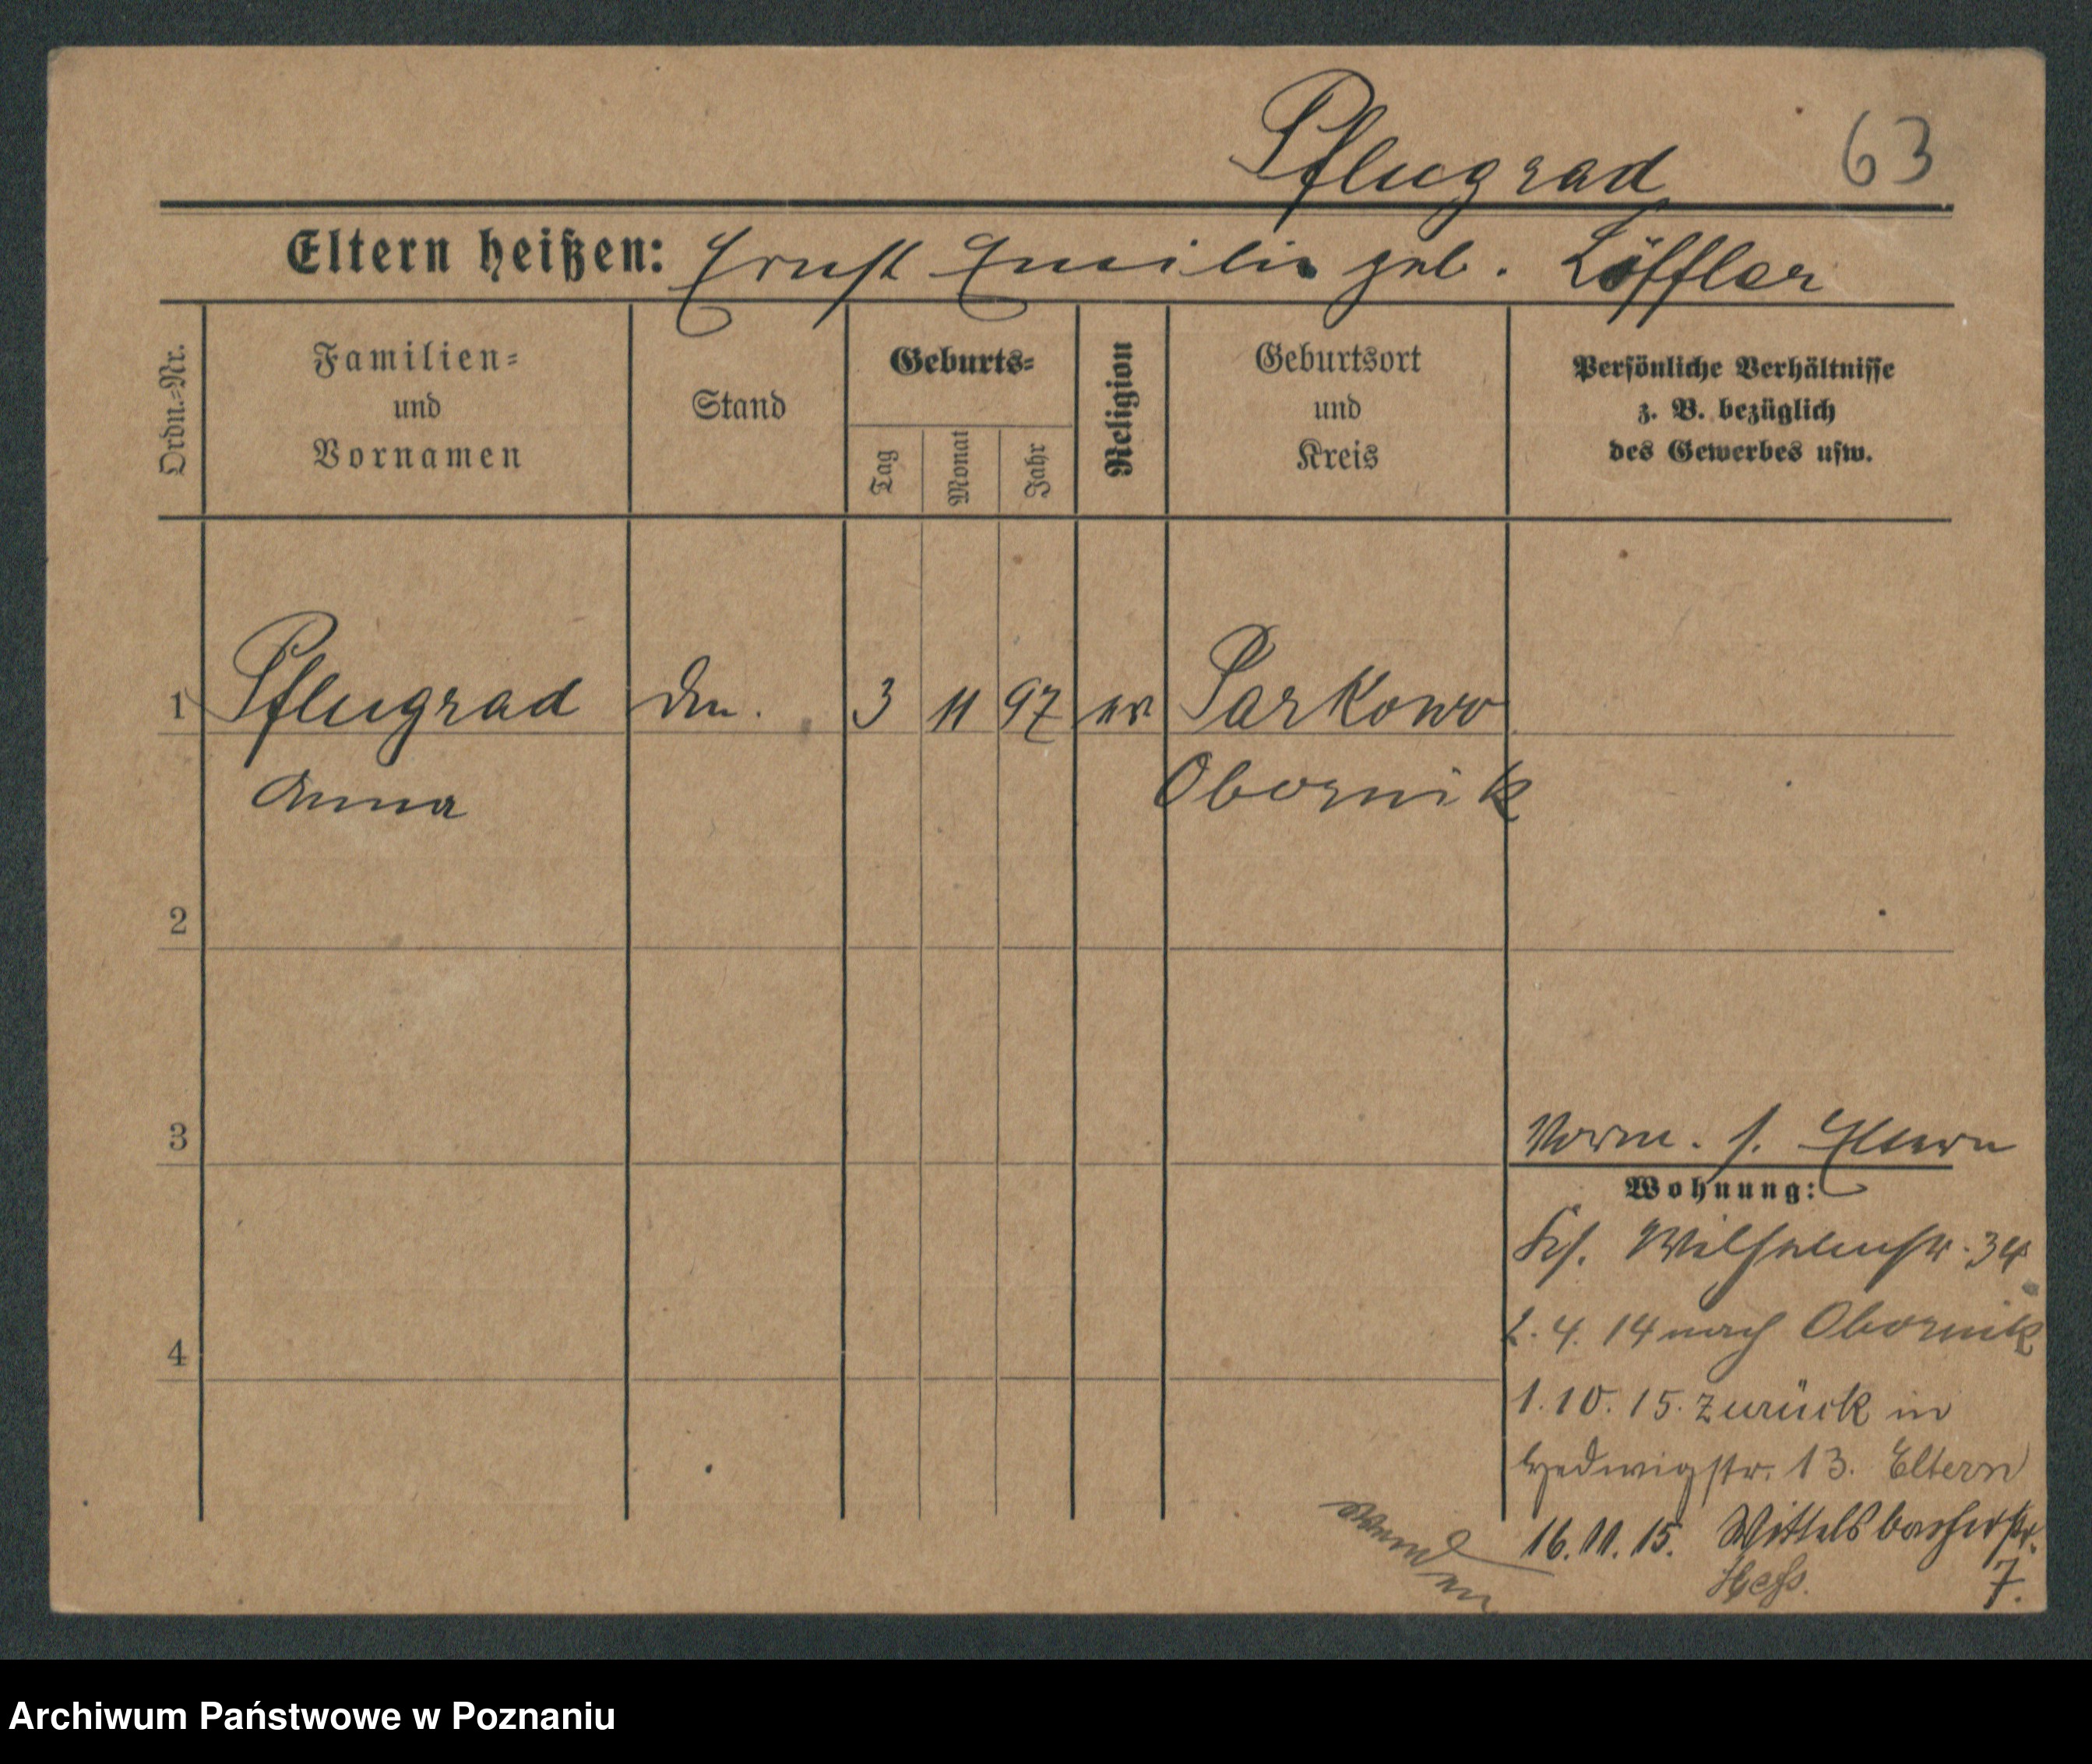 Pflugrad 63
Eltern heißen: Ernst Emilie geb. Löffler
Ordn.-Nr.
Familien-
und
Vornamen
Stand
Geburts-
Tag
Monat
Jahr
Religion
Geburtsort
und
Kreis
Persönliche Verhältnisse
z. B. bezüglich
des Gewerbes usw.
1 Pflugrad 3 11 97 ev Parkowo
Anna Obornik
2
3
Vorm. s. Eltern
Wohnung:
4
Wilhelmstr. 34
2. 4. 14 nach Obornik
1. 10. 15. zurück in
Hedwigstr. 13. Eltern
16. 11. 15. Wittelsbacherstr.
7.
wenden
Archiwum Państwowe w Poznaniu